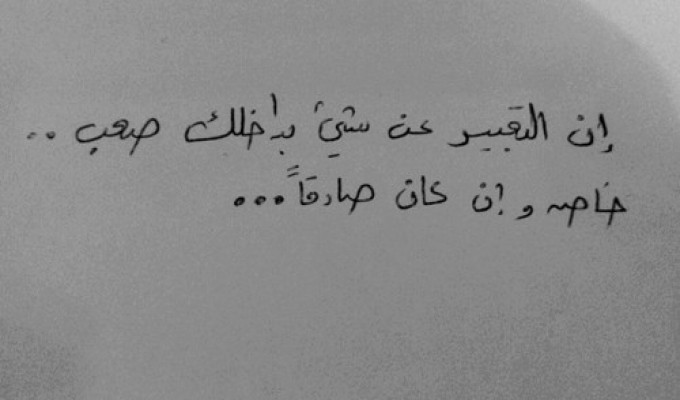 إن التعبير عن شيئ بداخلك صعب ..
خاصه و إن كان صادقاً ...